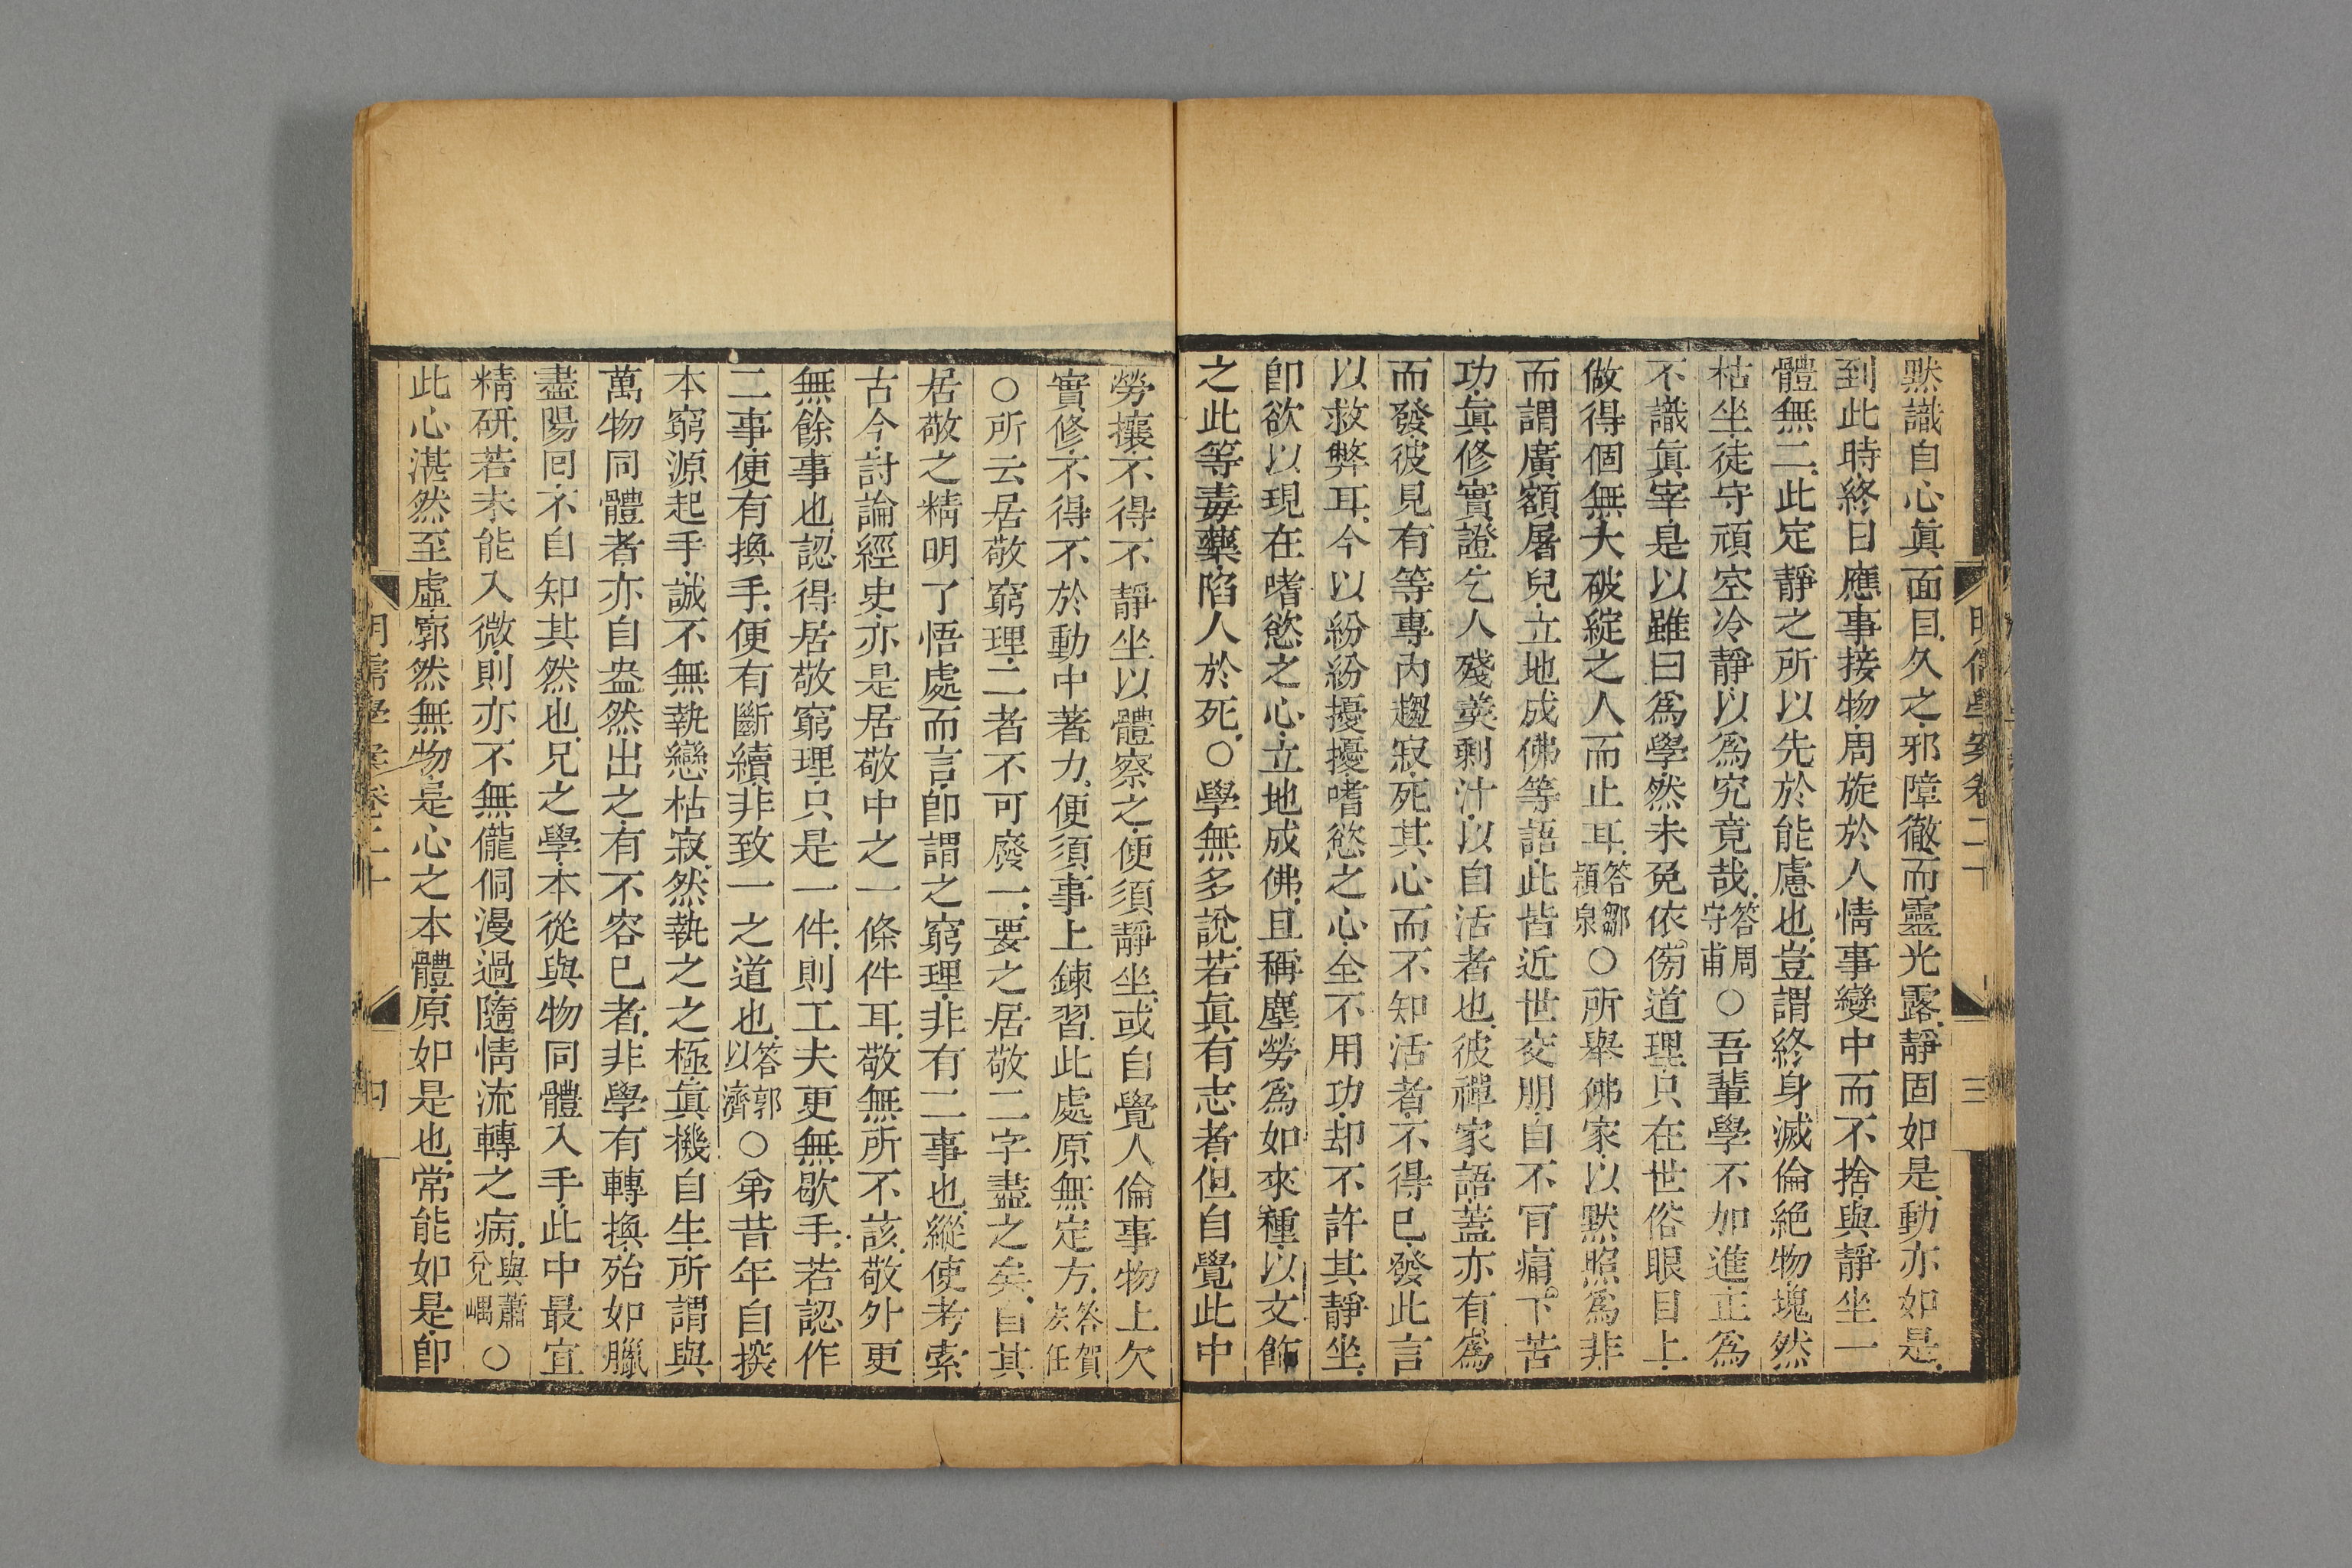 明儒學案卷二十
三
默識自心眞面目久之邪障徹而靈光露靜固如是動亦如是
到此時終日應事接物周旋於人情事變中而不捨與靜坐一
體無二此定靜之所以先於能慮也豈謂終身滅倫絕物塊然
枯坐徒守頑空冷靜以爲究竟哉答周守甫○吾輩學不加進正爲
不識眞宰是以雖曰爲學然未免依傍道理只在世俗眼目上
做得個無大破綻之人而止耳答鄒潁泉○所舉佛家以默照爲非
而謂廣額屠兒立地成佛等語此皆近世交朋自不肎痛下苦
功眞修實證乞人殘羹剩汁以自活者也彼禪家語蓋亦有爲
而發彼見有等專內趨寂死其心而不知活者不得已發此言
以救弊耳今以紛紛擾擾嗜慾之心全不用功却不許其靜坐
卽欲以現在嗜慾之心立地成佛且稱塵勞爲如來種以文飾
之此等毒藥陷人於死○學無多說若眞有志者但自覺此中
勞攘不得不靜坐以體察之便須靜坐或自覺人倫事物上欠
實修不得不於動中著力便須事上鍊習此處原無定方答賀弘任
○所云居敬窮理二者不可廢一要之居敬二字盡之矣自其
居敬之精明了悟處而言卽謂之窮理非有二事也縱使考索
古今討論經史亦是居敬中之一條件耳敬無所不該敬外更
無餘事也認得居敬窮理只是一件則工夫更無歇手若認作
二事便有換手便有斷續非致一之道也答郭以濟○弟昔年自探
本窮源起手誠不無執戀枯寂然執之之極眞機自生所謂與
萬物同體者亦自盎然出之有不容已者非學有轉換殆如臘
盡陽囘不自知其然也兄之學本從與物同體入手此中最宜
精研若未能入微則亦不無儱侗漫過隨情流轉之病與蕭兌嵎○
此心湛然至虛廓然無物是心之本體原如是也常能如是卽
明儒學案卷二十
四